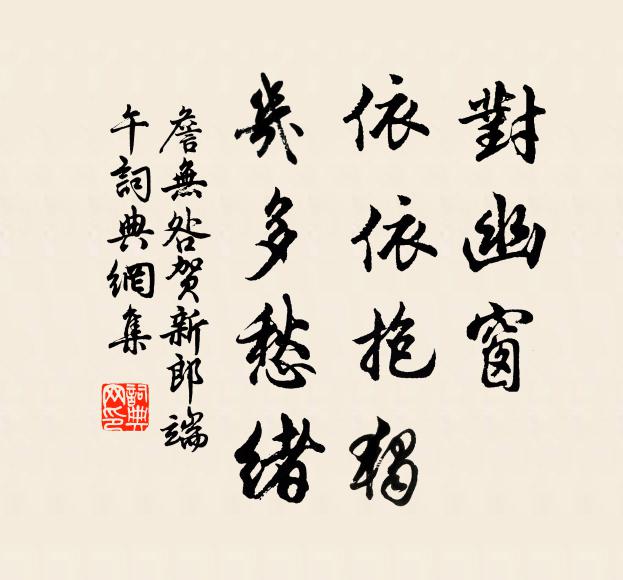 對幽窗
依依抱獨
幾多愁緒
詹無咎賀新郎端
午詞典網集
詞典
网印